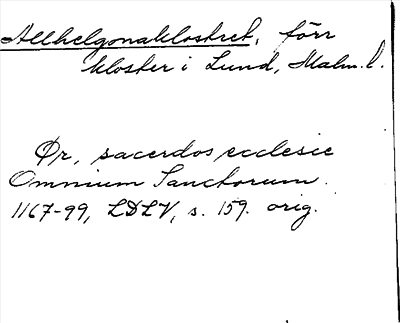 Allhelgonaklostret, förr
kloster i Lund, Malm. l.
Ør, sacerdos ecclesie
Omnium Sanctorum.
1167-99, LDLV, s. 159. orig.